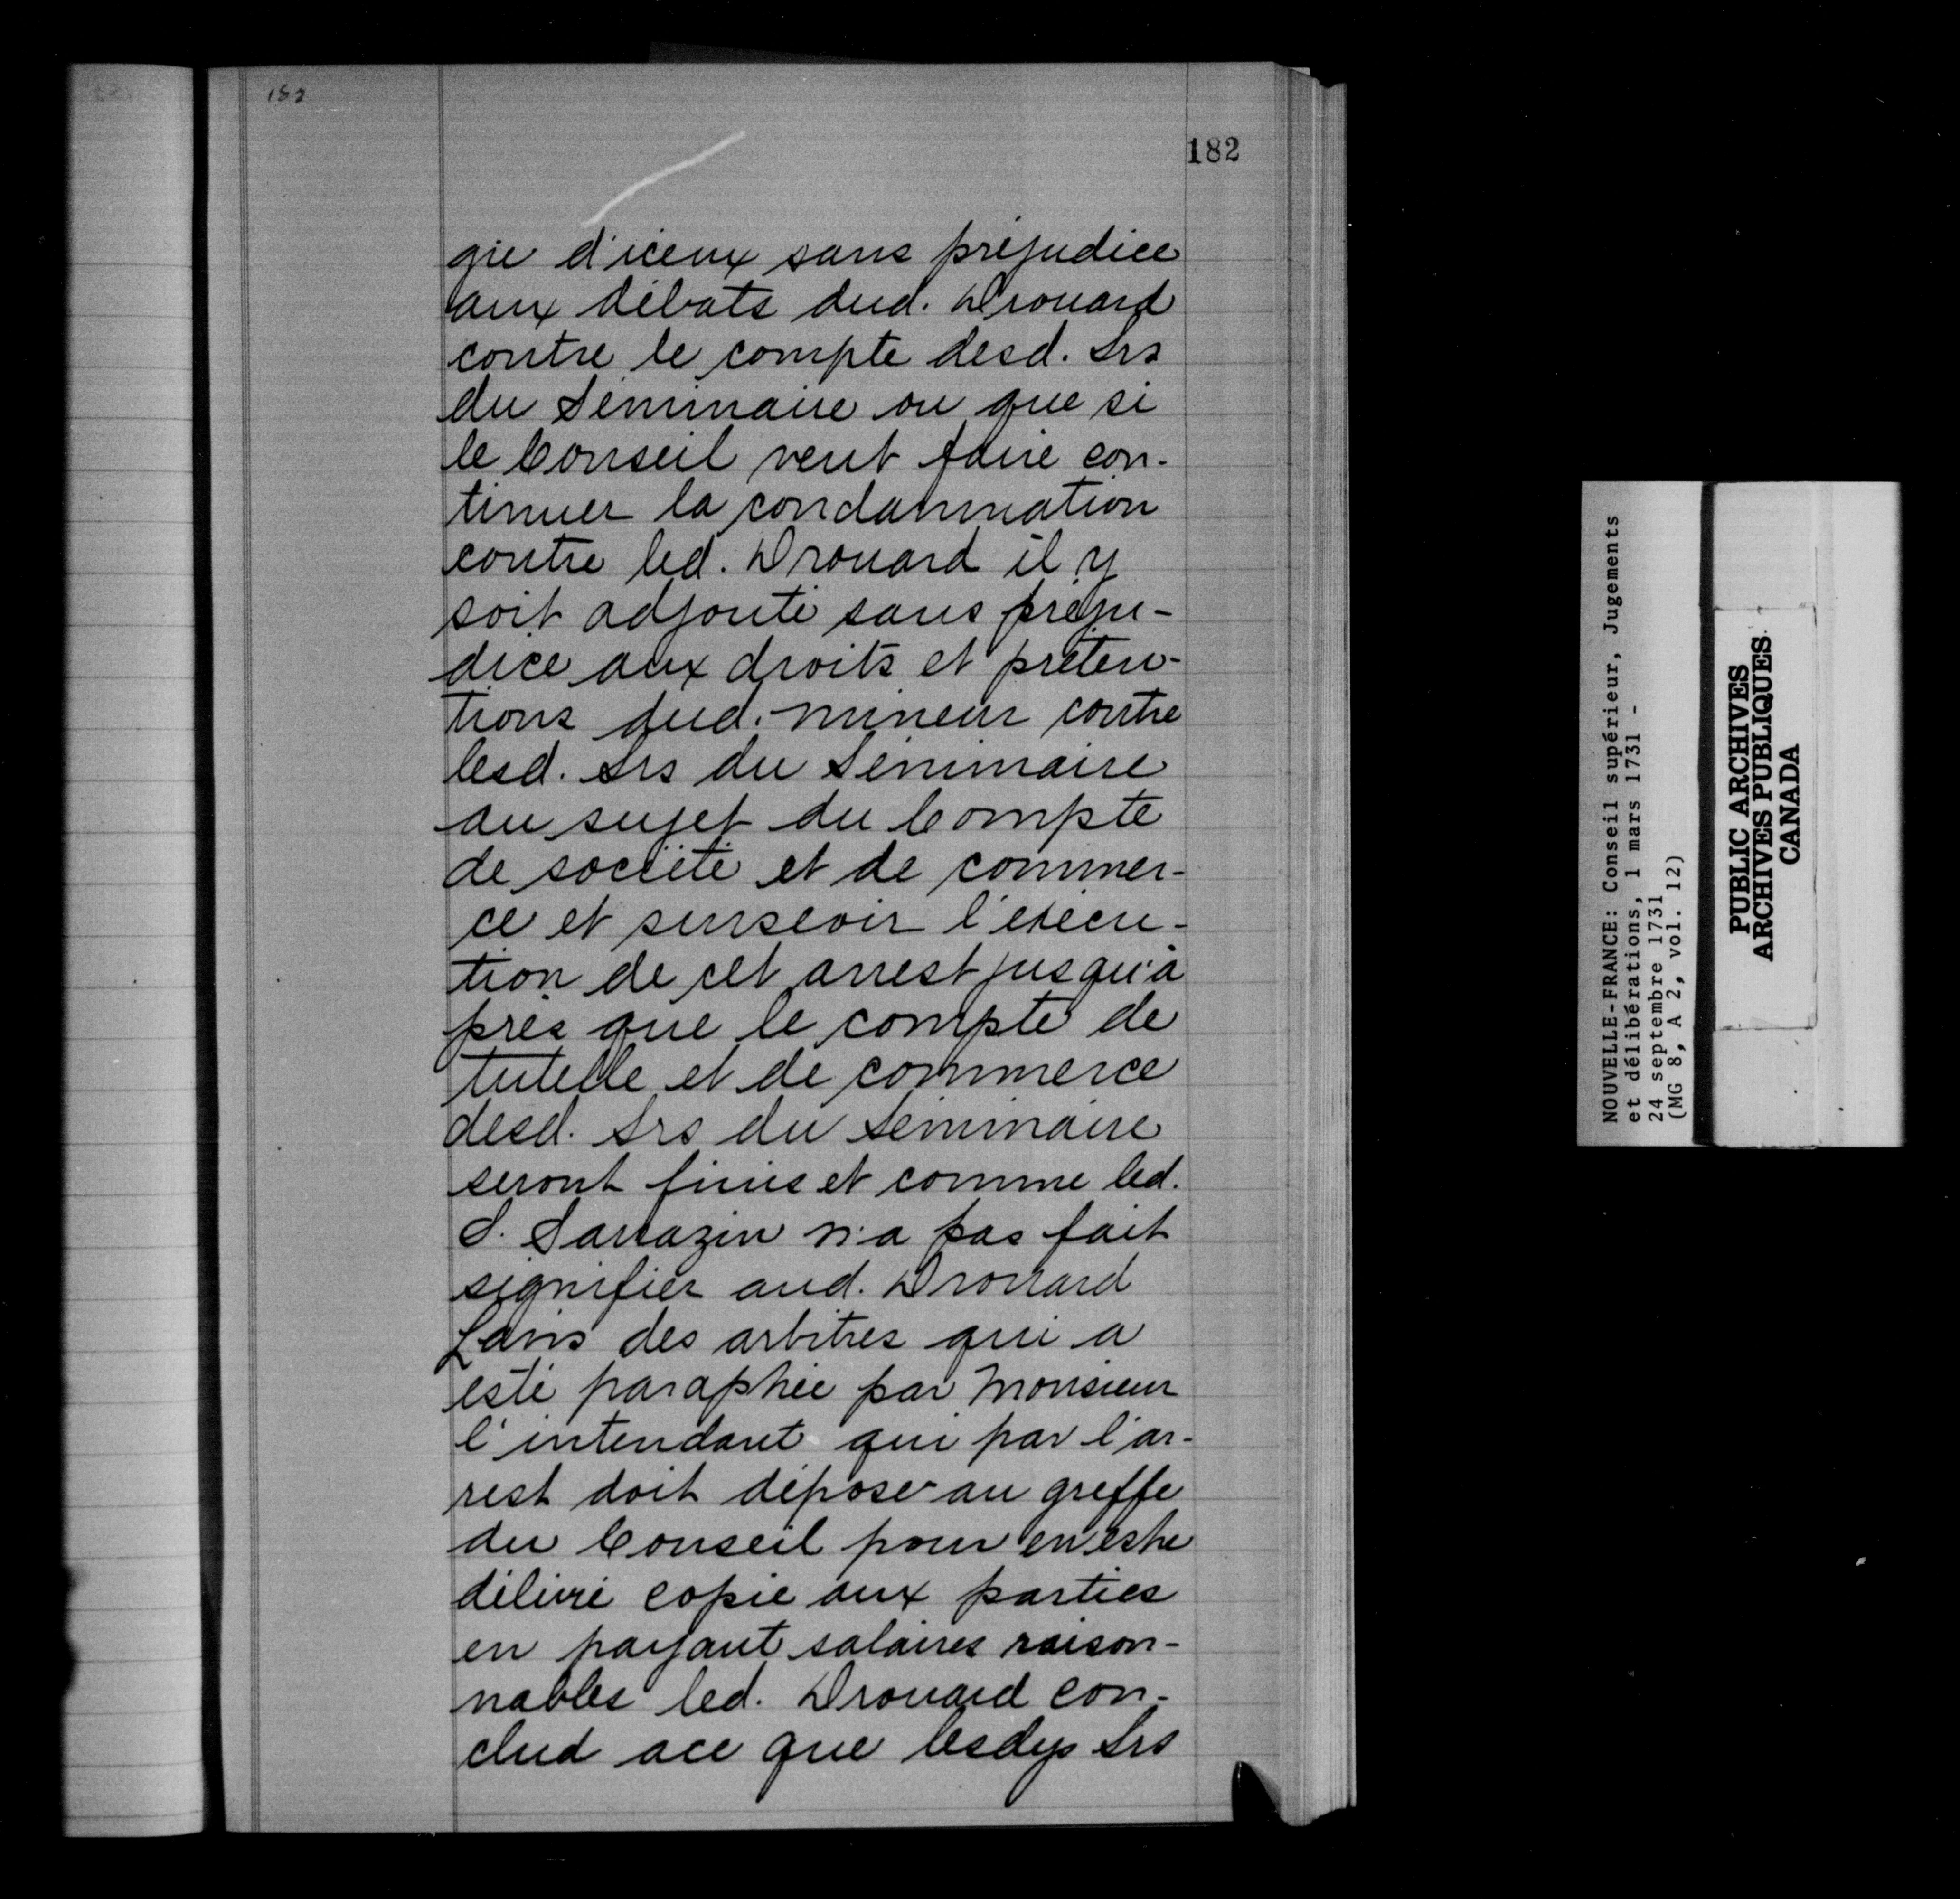 182
182
gie d'iceux sans préjudice
aux débats dud. Drouard
contre le compte desd. Srs
du Séminaire ou que si
le Conseil veut faire con-
tinuer la condamnation
contre led. Drouard il y
soit adjouté sans préju-
dice aux droits et préten-
tions dud. mineur contre
lesd. Srs du Séminaire
au sujet du Compte
de société et de commer-
ce et surseoir l'exécu-
tion de cet arrest jusqu'a
près que le compte de
tutelle et de commerce
desd. Srs du Séminaire
seront finis et comme led.
S. Sarrazin n'a pas fait
signifier aud. Drouard
Lavis des arbitres qui a
esté paraphée par Monsieur
l'intendant qui par l'ar-
rest doit déposer au greffe
du Conseil pour en estre
délivré copie aux parties
en payant salaires raison-
nables led. Drouard con-
clud ace que lesdys Srs
NOUVELLE-FRANCE: Conseil supérieur, Jugements
et délibérations, 1 mars 1731 -
24 septembre 1731
(MG 8, A 2, vol. 12)
PUBLIC ARCHIVES
ARCHIVES PUBLIQUES
CANADA